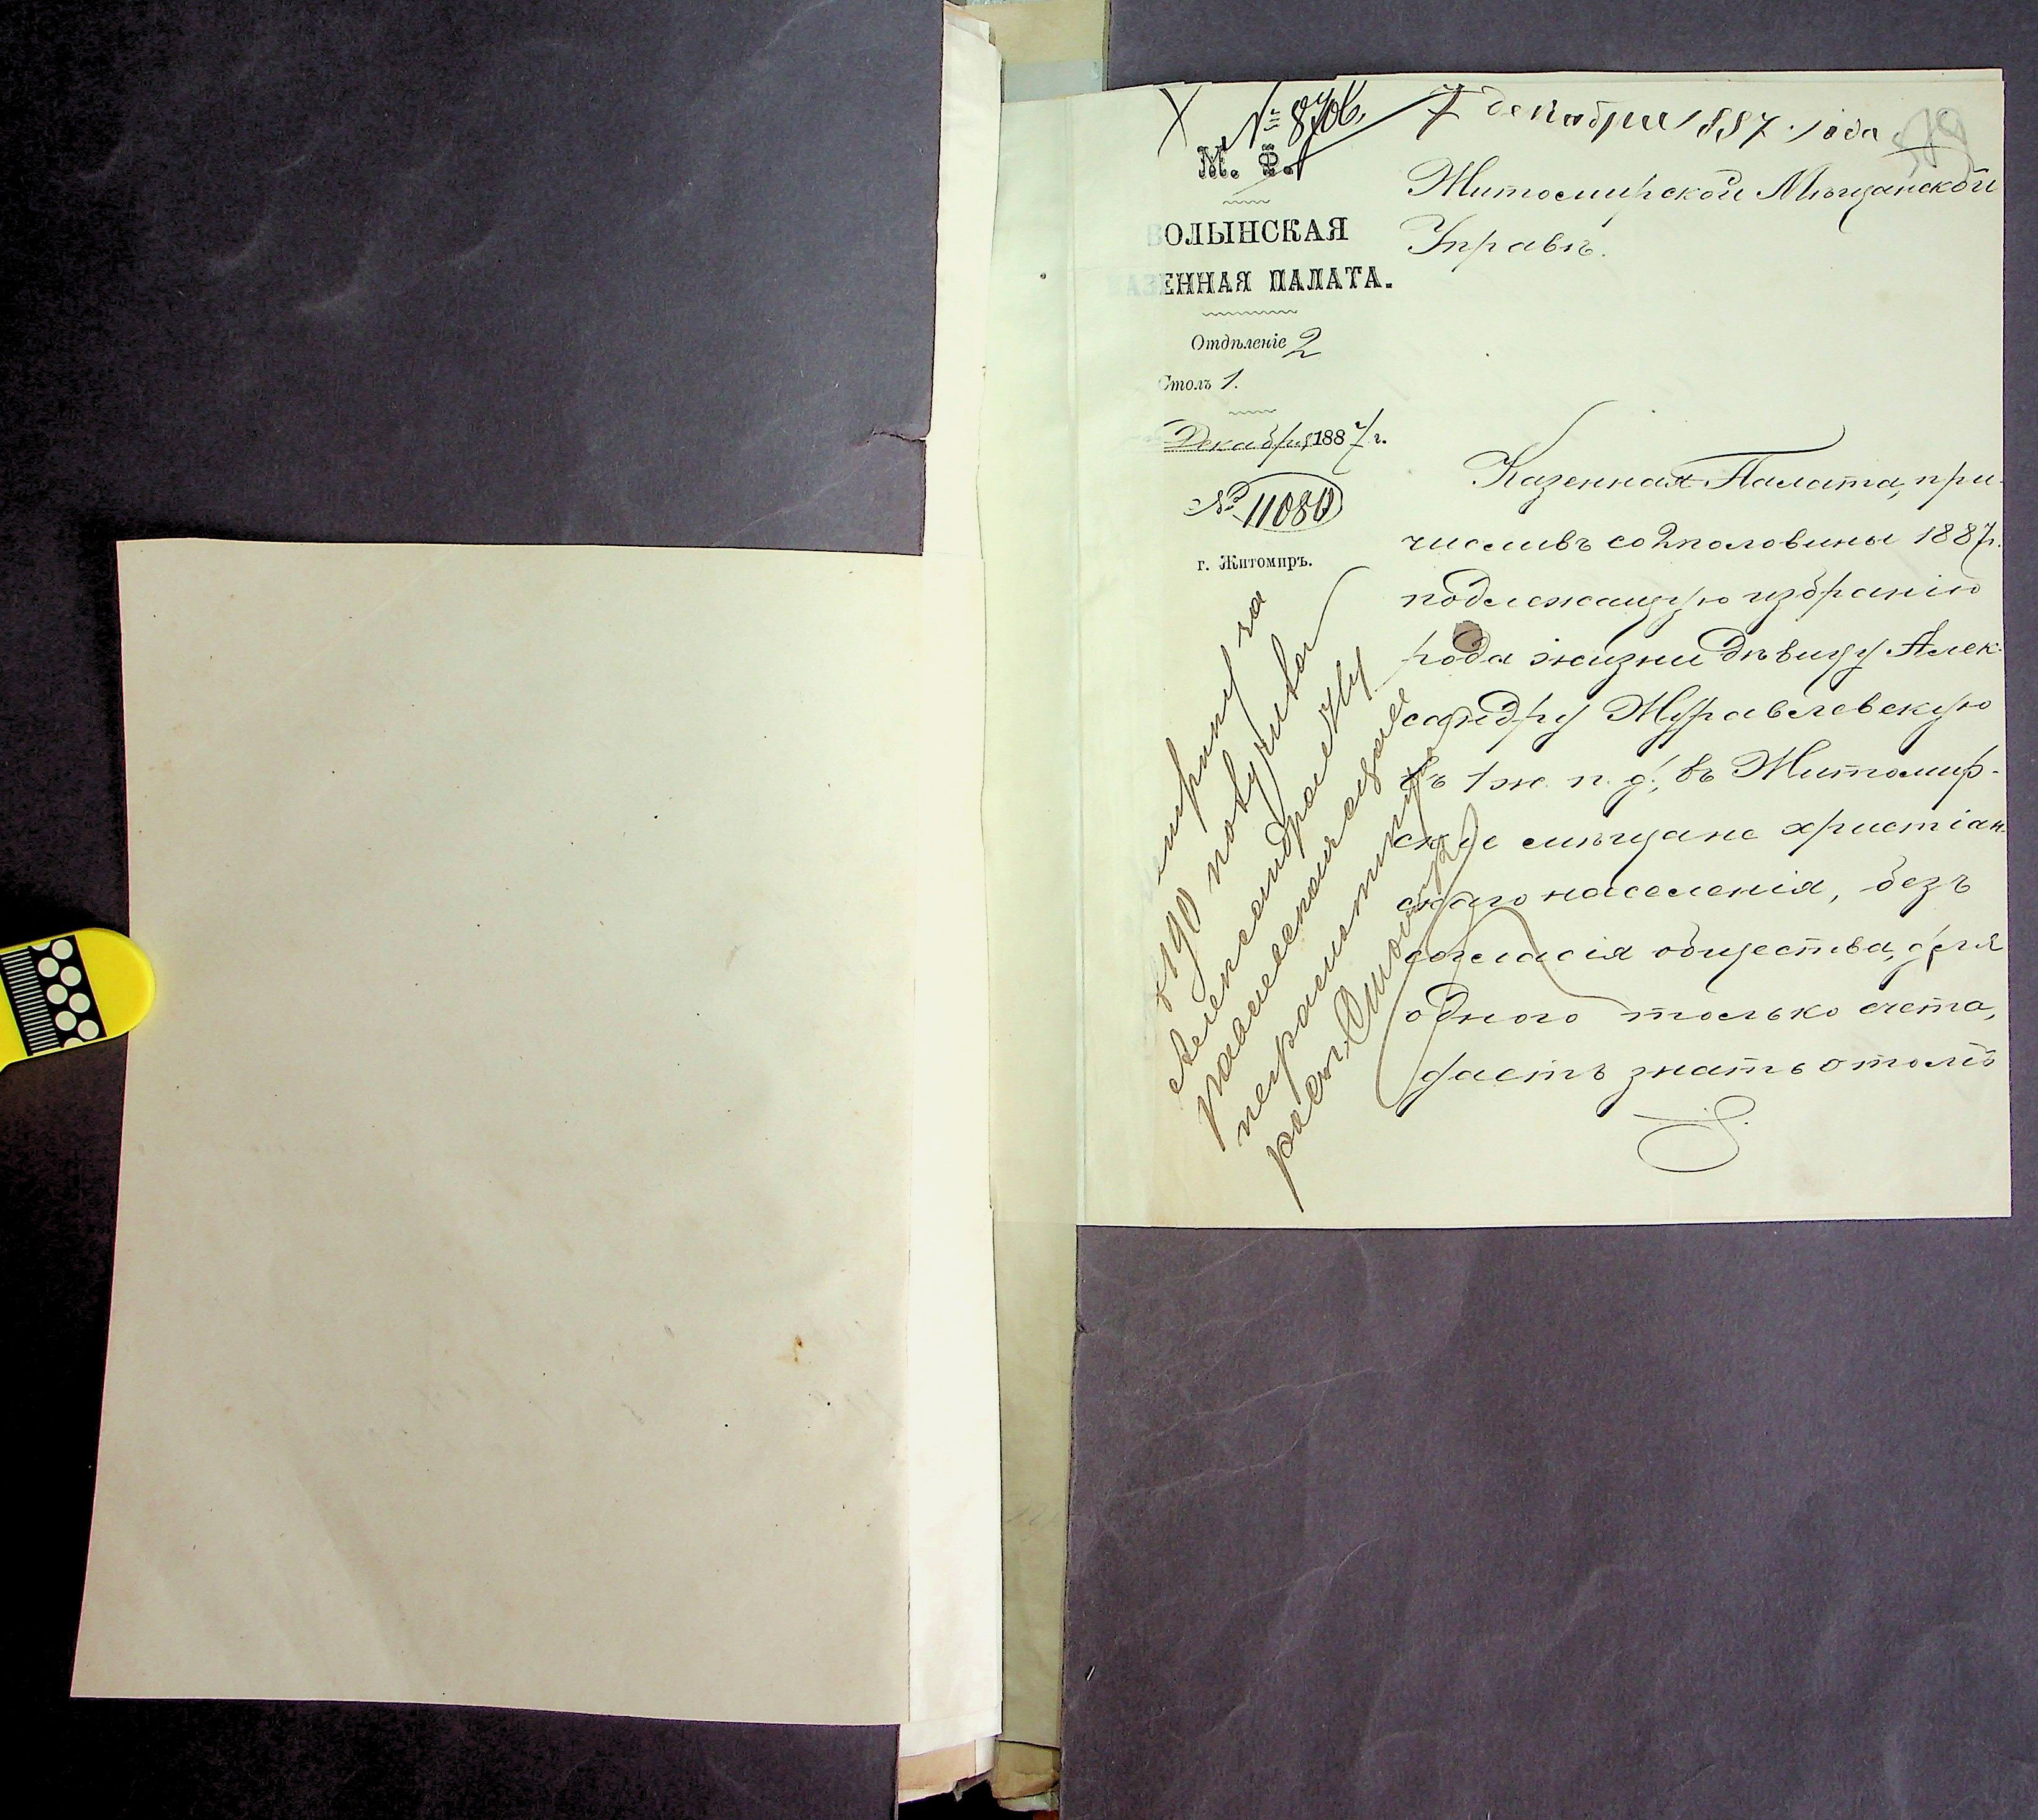 № 8706. 7 декабря 1887 года
М. Ф.
ВОЛЫНСКАЯ
КАЗЕННАЯ ПАЛАТА.
Отдѣленіе 2
Столъ 1.
Декабря 1887 г.
№ 11080
г. Житомиръ.
Житомирской Мѣщанской
Управѣ.
Казенная Палата, при-
числивъ со 2 половины 1887 г.
подлежащую избранію
рода жизни дѣвицу Алек-
сандру Журавлевскую
въ 1 ж. п. д., въ Житомир-
скіе мѣщане христіан-
скаго населенія, безъ
согласія общества, для
одного только счета,
даетъ знать о томъ
за
8190 получила
Александра Жу
равлевская а за нее
неграмотную
росп.